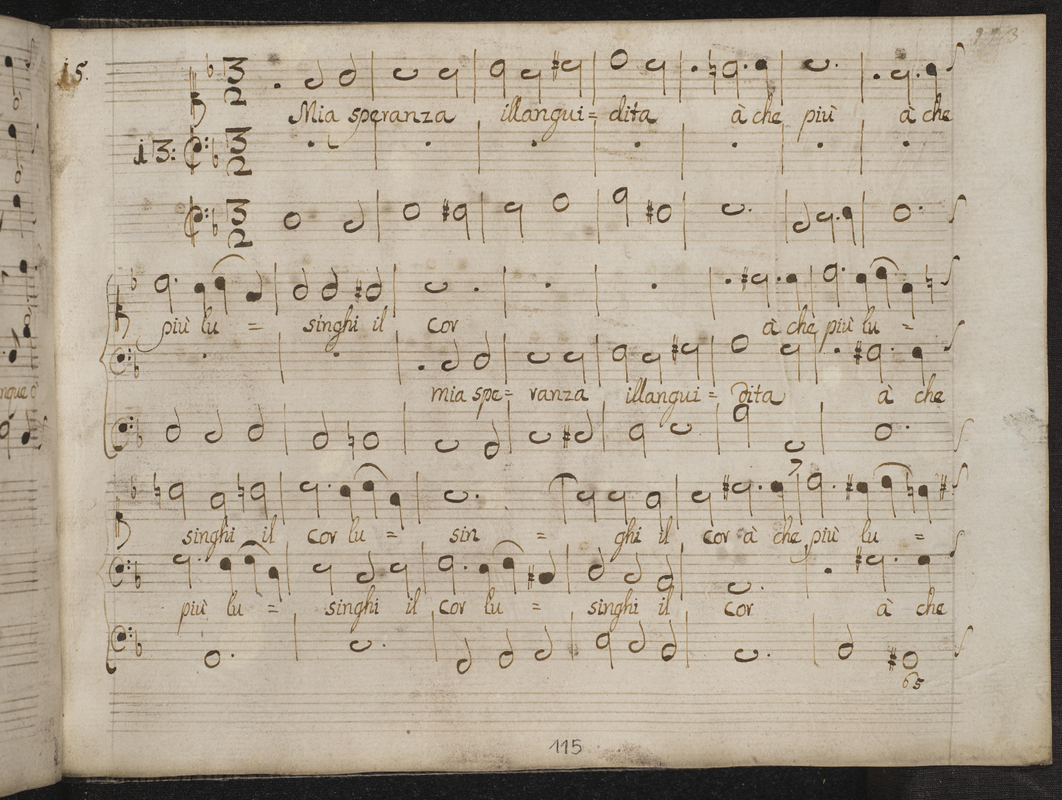 15.
3
2
Mia speranza illangui= dita à che più à che
13:
3
2
3
2
più lu = singhi il cor à che più lu =
mia spe= ranza illangui= dita à che
singhi il cor lu = sin = ghi il cor à che più lu =
più lu = singhi il cor lu = singhi il cor à che
65
115